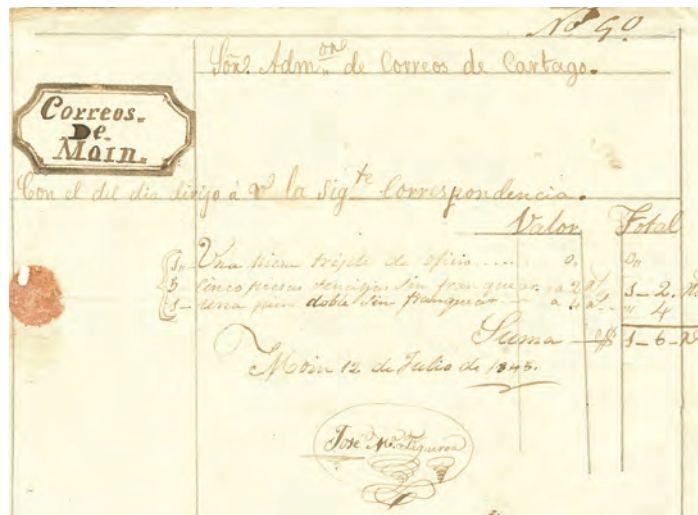 Nº 90
Sõr. Admor. de Correos de Cartago.
Correos.
De.
Moin.
Con el del dia dirijo á V. la Sigte Correspondencia.
Valor Total
1,, Una pieza triple de oficio.... 0. 0,,
5 Cinco piezas sencillas sin franquear. a 2 1-2.
1- una pieza doble sin franquear a 4 ,, 4
Suma $ 1-6-
Moin 12 de Julio de 1845.
José Mª. Figueroa